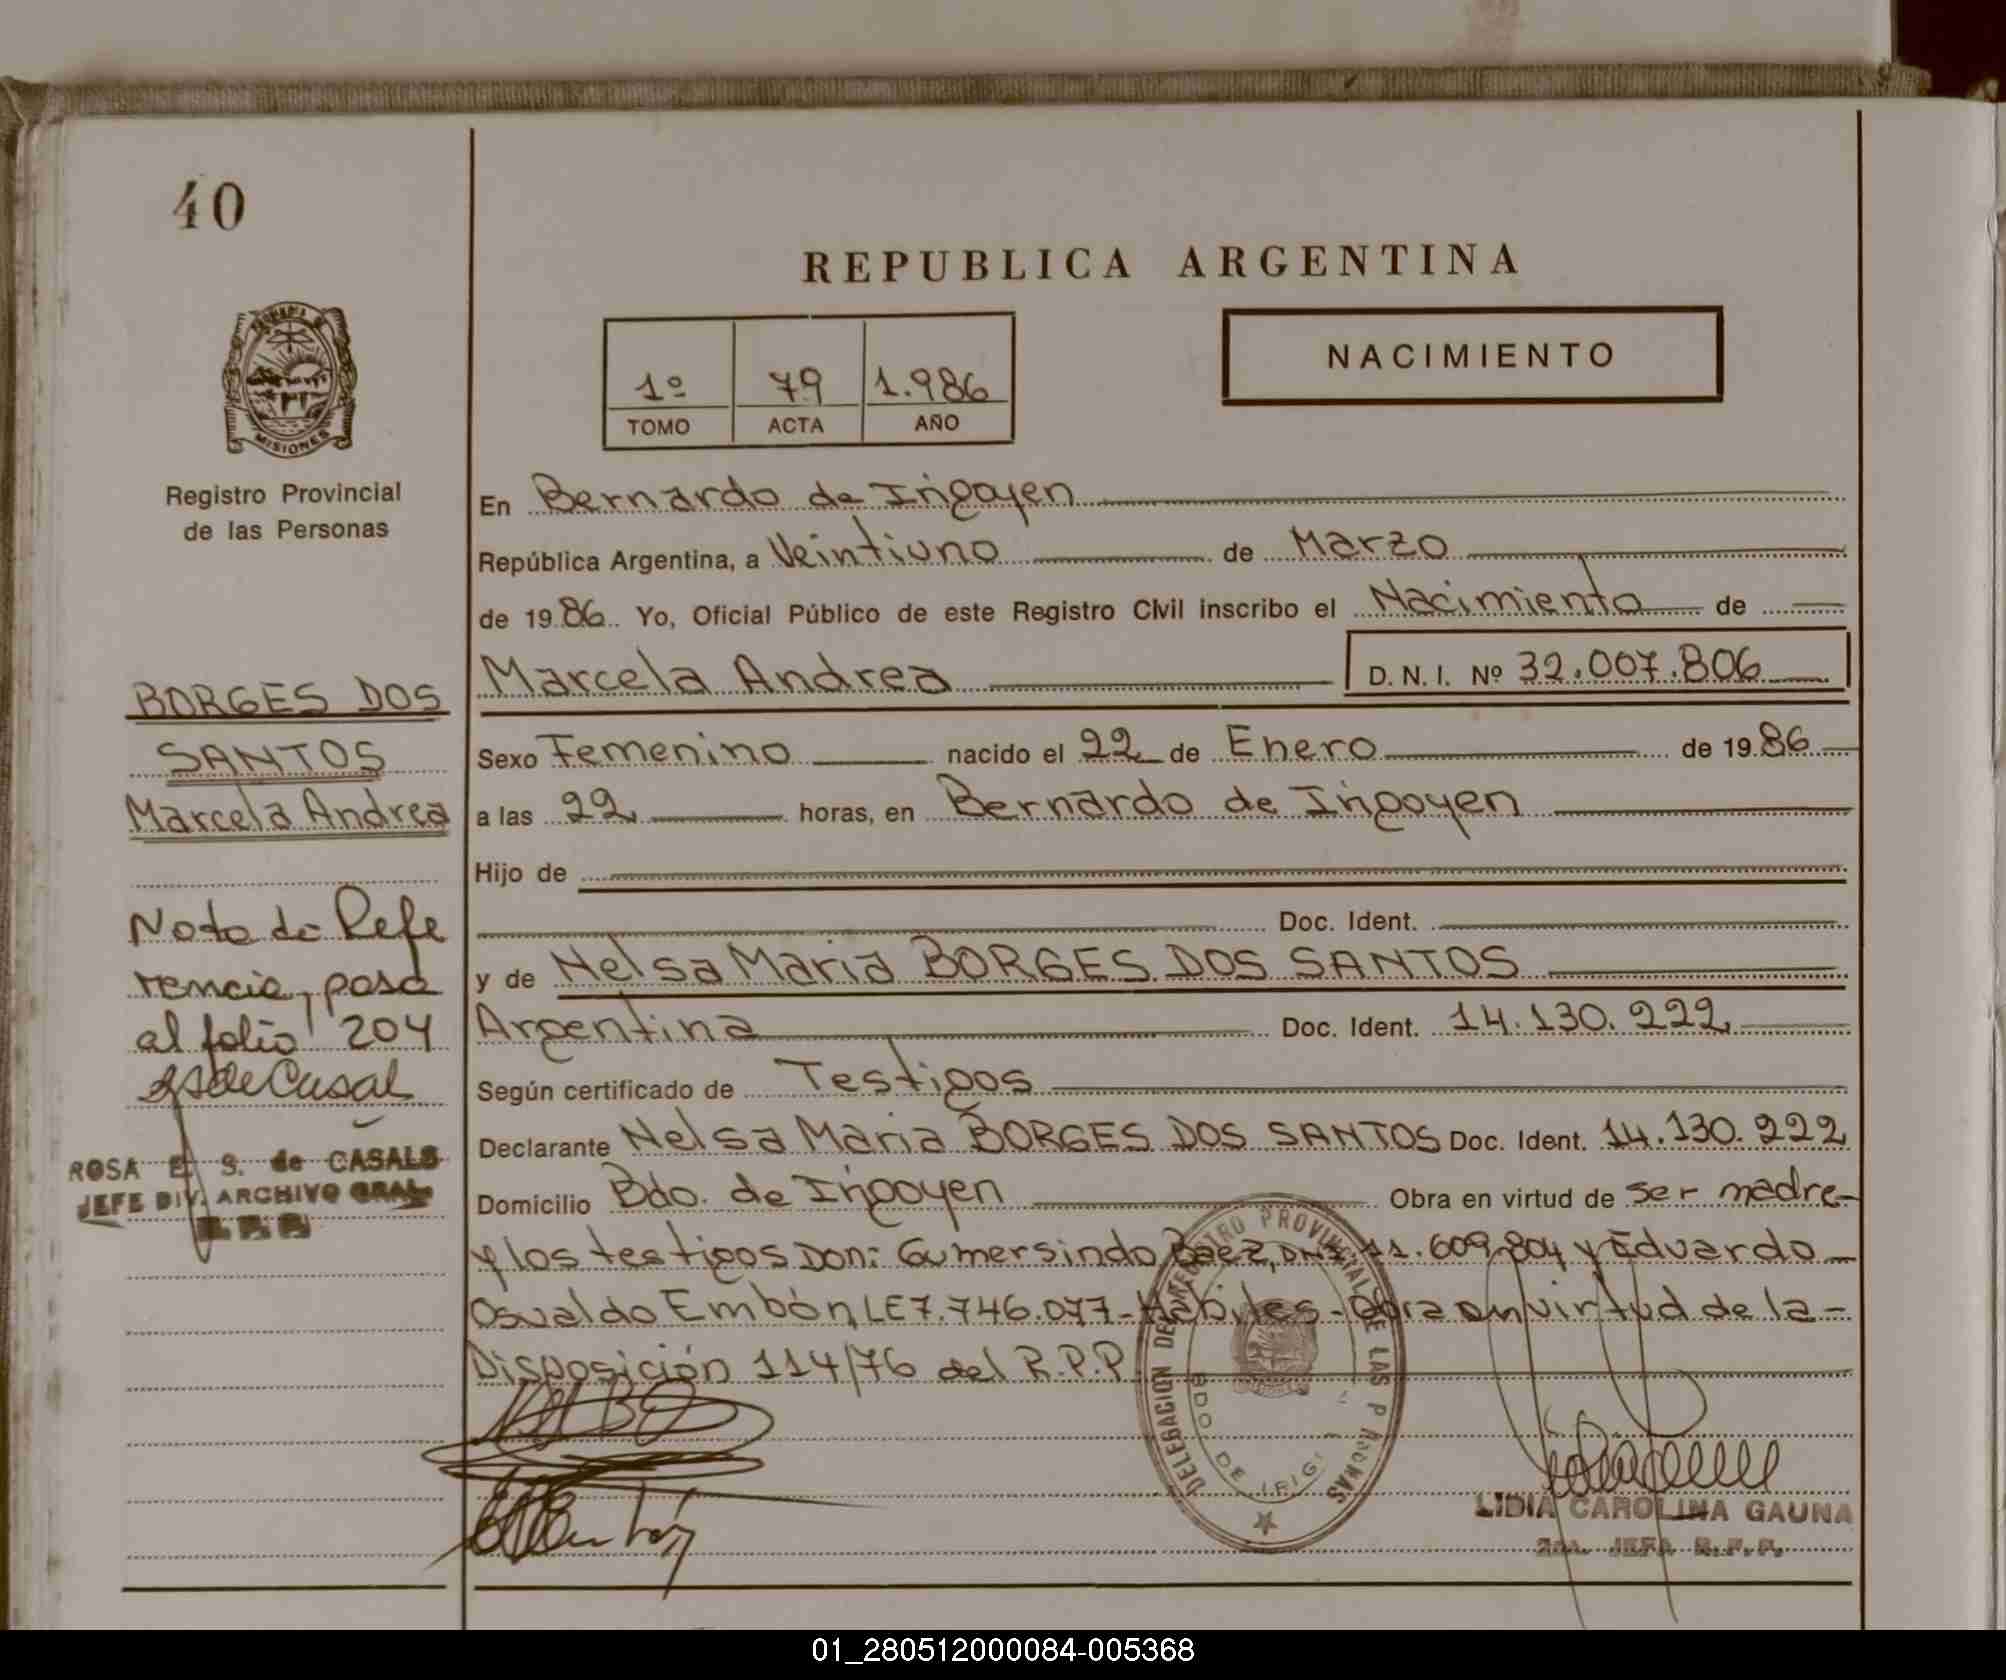 40
REPUBLICA ARGENTINA
NACIMIENTO
1º 79 1.986
TOMO ACTA AÑO
MISIONES
Registro Provincial
de las Personas
En Bernardo de Irigoyen
República Argentina, a Veintiuno de Marzo
de 1986. Yo, Oficial Público de este Registro Civil inscribo el Nacimiento de
Marcela Andrea D. N. I. Nº 32.007.806
BORGES DOS
SANTOS
Marcela Andrea
Sexo Femenino nacido el 22 de Enero de 1986
a las 22 horas, en Bernardo de Irigoyen
Hijo de
Doc. Ident.
y de Nelsa Maria BORGES DOS SANTOS
Argentina Doc. Ident. 14.130.222
Según certificado de Testigos
Declarante Nelsa Maria BORGES DOS SANTOS Doc. Ident. 14.130.222
Domicilio Bdo. de Irigoyen Obra en virtud de ser madre-
y los testigos Don: Gumersindo Baez, DNI 11.609.804 y Eduardo
Osvaldo Embón, LE 7.746.077-Habiles-Obra en virtud de la-
Disposición 114/76 del R.P.P.
Nota de Refe
rencia, pasa
al folio 204
ROSA E. S. de CASALS
JEFE DIV. ARCHIVO GRAL.
DELEGACION DEL REGISTRO PROVINCIAL DE LAS PERSONAS
BDO DE IRIG
LIDIA CAROLINA GAUNA
JEFA R.P.P.
01_280512000084-005368